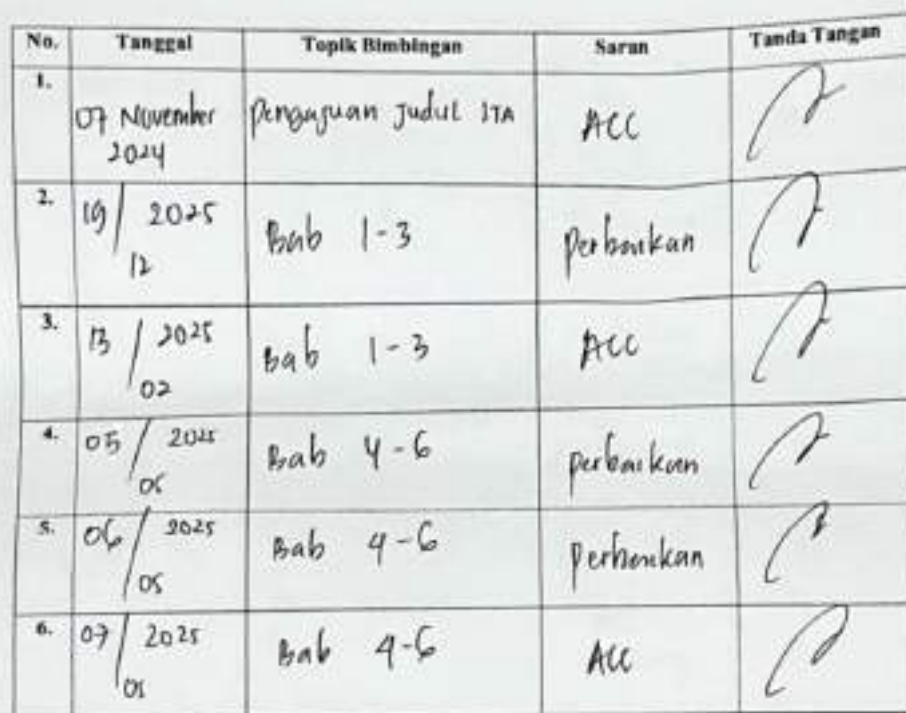 No. Tanggal Topik Bimbingan Saran Tanda Tangan
1. 07 November 2024 Pengajuan Judul ITA ACC
2. 19/12 2025 Bab 1-3 Perbaikan
3. 13/02 2025 Bab 1-3 ACC
4. 05/05 2025 Bab 4-6 perbaikan
5. 06/05 2025 Bab 4-6 Perbaikan
6. 07/05 2025 Bab 4-6 ACC